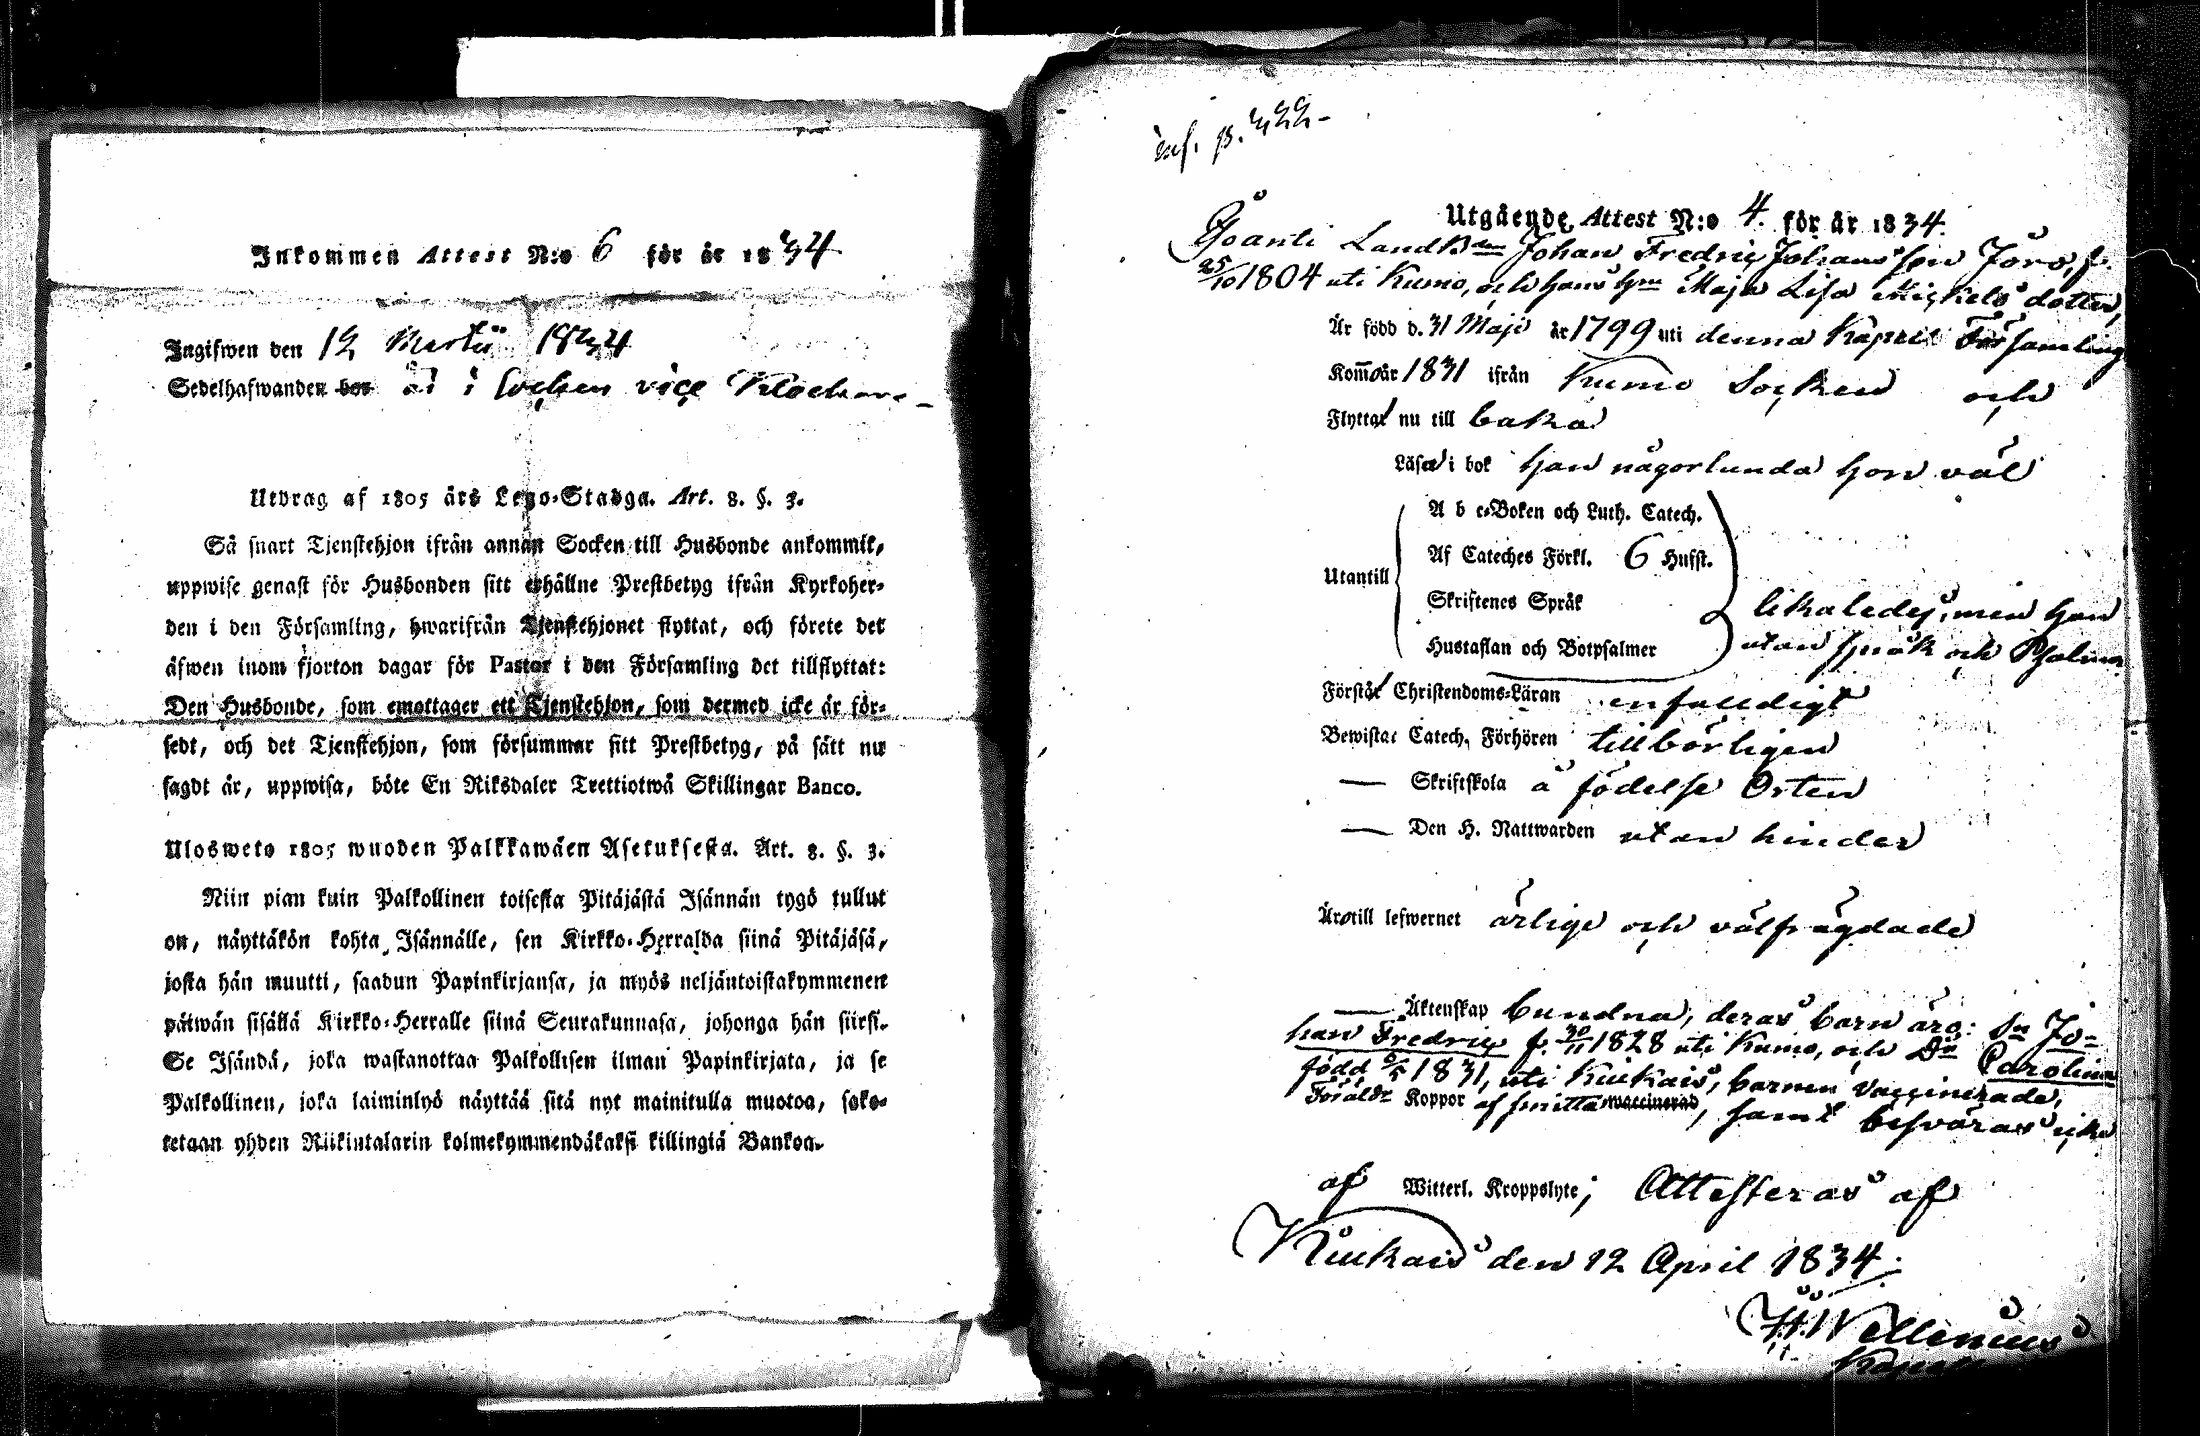 Inkommen Attest N:o 6 för år 1834
Ingifwen den 12 Martii 1834
Sedelhafwanden bor är i Socken vice Klockare
Utdrag af 1805 års Lego-Stadga. Art. 8. §. 3.
Så snart Tjenstehjon ifrån annan Socken till Husbonde ankommit,
uppwise genast för Husbonden sitt erhållne Prestbetyg ifrån Kyrkoher-
den i den Församling, hwarifrån Tjenstehjonet flyttat, och förete det
äfwen inom fjorton dagar för Pastor i den Församling det tillflyttat:
Den Husbonde, som emottager ett Tjenstehjon, som dermed icke är för-
sedt, och det Tjenstehjon, som försummar sitt Prestbetyg, på sätt nu
sagdt är, uppwisa, böte En Riksdaler Trettiotwå Skillingar Banco.
Ulosweto 1805 wuoden Palkkawäen Asetuksesta. Art. 8. §. 3.
Niin pian kuin Palkollinen toisesta Pitäjästä Isännän tygö tullut
on, näyttäkön kohta Isännälle, sen Kirkko-Herralda siinä Pitäjäsä,
josta hän muutti, saadun Papinkirjansa, ja myös neljäntoistakymmenen
päiwän sisällä Kirkko-Herralle siinä Seurakunnasa, johonga hän siirsi.
Se Isändä, joka wastanottaa Palkollisen ilman Papinkirjata, ja se
Palkollinen, joka laiminlyö näyttää sitä nyt mainitulla muotoa, sako-
tetaan yhden Riikintalarin kolmekymmendäkaksi killingiä Bankoa.
inf. p. 422
Utgående Attest N:o 4. för år 1834.
Landtb Johan Fredric Johansson Jöro, f.
25/10 1804 uti Kumo, och hans Hu Maja Lisa Mickelsdotter,
Är född d. 31 Maji år 1799 uti denna Kapell Församling
Kom̄o år 1831 ifrån Kumo Socken och
Flyttar nu till baka
Läser i bok han någorlunda hon väl
A b c-Boken och Luth. Catech.
Af Cateches Förkl. 6 Hufst.
Utantill
Skriftenes Språk
likaledes, men han
Hustaflan och Botpsalmer
utan språk och Psalmer
Förstår Christendoms-Läran enfalldigt
Bewistar Catech. Förhören tillbörligen
— Skriftskola å födelse Orten
— Den H. Nattwarden utan hinder
Äro till lefwernet ärlige och välfrägdade
— Äktenskap bundna, deras barn äro: Sn Jo-
han Fredric f. 30/11 1828 uti Kumo, och Dr Carolina
född 6/5 1831, uti Kiukais, barnen vaccinerade,
Föräldr Koppor af smitta waccinerad, samt besväras icke
af Witterl. Kroppslyte; Attesteras af
Kiukais den 12 April 1834.
H. Wellenius